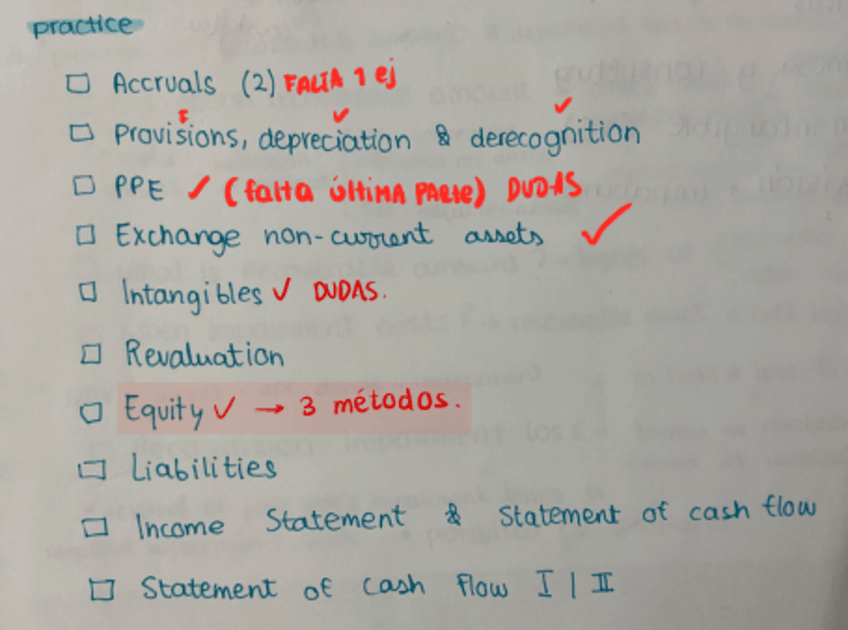 practice
☐ Accruals (2) FALTA 1 ej
☐ Provisions, depreciation & derecognition
☐ PPE ✓ (falta última PARTE) DUDAS
☐ Exchange non-current assets ✓
☐ Intangibles ✓ DUDAS.
☐ Revaluation
☐ Equity ✓ → 3 métodos.
☐ Liabilities
☐ Income Statement & Statement of cash flow
☐ Statement of cash flow I | II